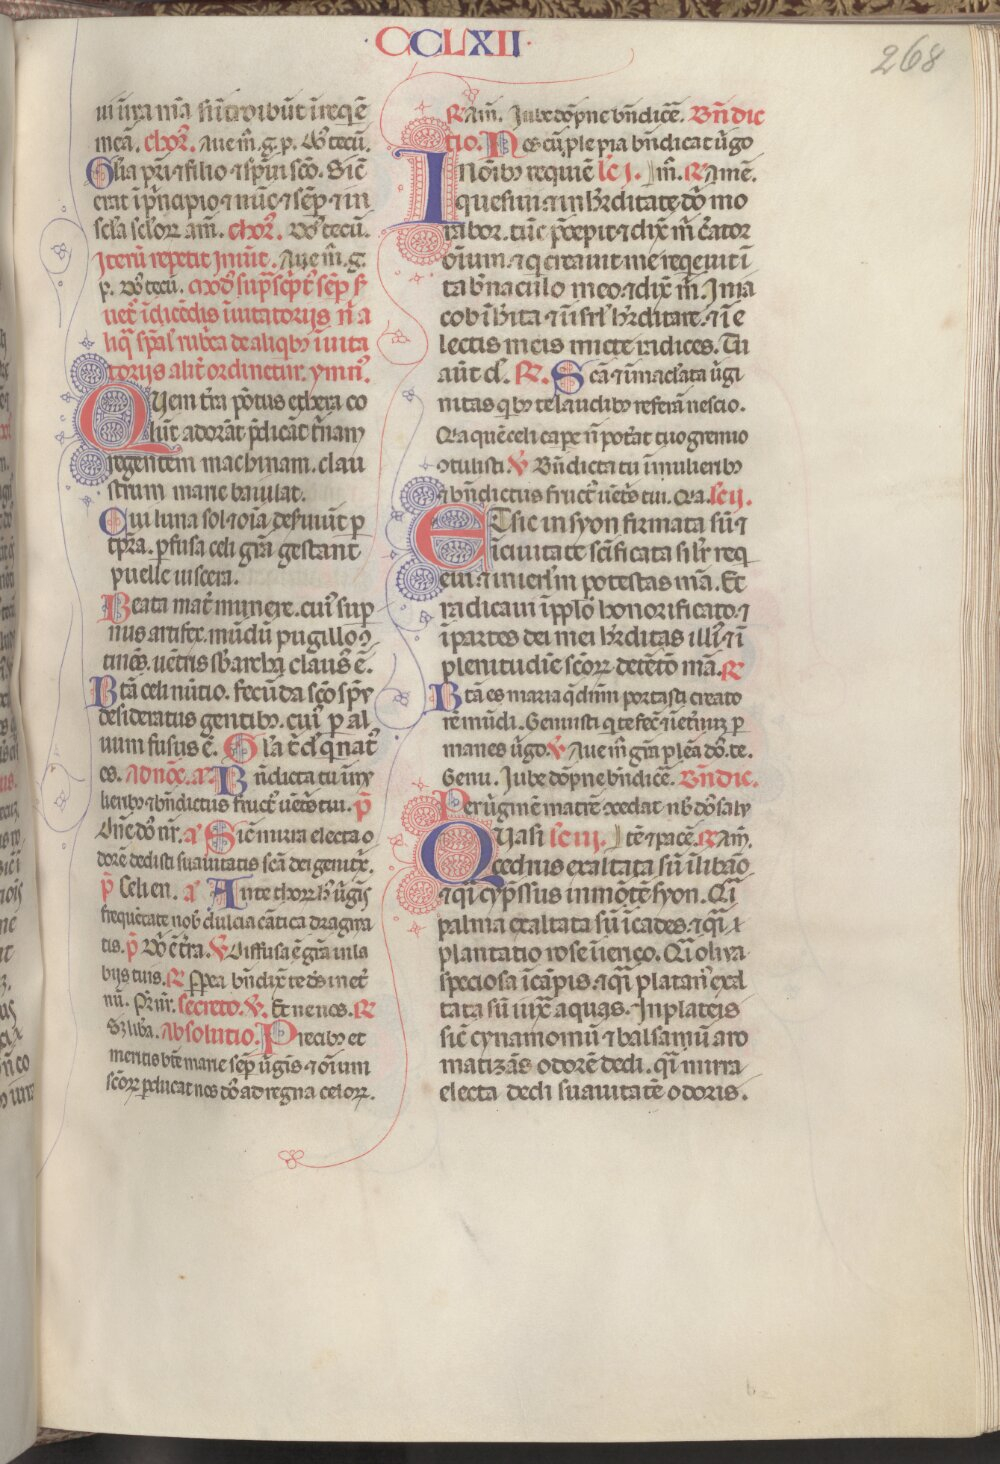 CCLXII
268
ui ūra mīa si ītroibūt ī reqē
meā. choꝛ. Aue m̄. g. p. do. tecū.
Glīa pr̄i ⁊ filio ⁊ sp̄ui scō. Sic̄
erat ī p̄ncipio ⁊ nūc ⁊ sēp ⁊ in
scl̄a scl̄oꝝ am̄. choꝛ. Do. tecū.
Iterū repetit Inuit. Aue m̄. g.
p. do. tecū.
toriis alit ordinetur. ymn.
Quem tr̄ra pōtus ethera co
lūt adorāt p̄dicāt t̄nam
regentem machinam. clau
strum marie baiulat.
Cui luna sol ⁊ oīa deseruiūt p
tp̄ra. pfusa celi grā̄ gestant
puelle uiscera.
Beata mat̄ munere. cui sup
nus artifex. mūdū pugillo ꝯ
tinēs. uētris sb archa clausꝰ ē.
Btā celi nūtio. fecūda scō sp̄u
desideratus gentibꝫ. cuiꝰ p al
uum fusus ē. Gla t̄ d̄ q nat
es. Ad noc̄. a. Bn̄dicta tu ī mu
lieribꝫ ⁊ bn̄dictus fructꝰ uētris tui. p̄
Dn̄e dō nr̄. a Sic̄ mirra electa o
dorē dedisti suauitatis scā dei genitx.
p̄ Celi en. a Ante thoꝝ hꝰ ūgīs
frequētate nob dulcia cātica dragma
tis. p̄ Dō ē t̄ra. ℣ Diffusa ē grā ī la
biis tuis. ℟ Pp̄ea bn̄dix̄ te dꝰ in et̄
nū. Pr̄ nr̄. secreto. ℣. Et ne nos. ℟
Sꝫ liba. Absolutio. Precibꝫ et
meritis bt̄e marie sēp ūgīs ⁊ oīum
scōꝝ pducat nos dō ad regna celoꝝ.
℟ Am̄. Iube dōpne bn̄dicē. Bn̄dic
tio. Nos cū ple pia bn̄dicat ūgo
INoībꝫ requiē lc̄ j. m̄. ℟ Amē.
quesiui. ⁊ in hr̄ditate dō mo
rabor. tūc p̄cepit ⁊ dix̄ m̄ c̄ator
oīum. ⁊ q creauit me reqeuit ī
tab̄naculo meo. ⁊ dix̄ m̄. In ia
cob īhita ⁊ ī isrl̄ hr̄ditare. ⁊ ī e
lectis meis mitte radices. Tu
aūt d. ℟. Scā ⁊ īmaclata ūgi
nitas qbꝫ te laudibꝫ referā nescio.
Qa quē celi cape n̄ potāt tuo gremio
ꝯtulisti. ℣ Bn̄dicta tu ī mulieribꝫ
⁊ bn̄dictus fructꝰ uētris tui. Qa. lc̄ ij.
ETsic in syon firmata sū ⁊
ī ciuitate scīficata silr̄ req
eui. ⁊ in ierl̄m potestas mā. Et
radicaui ī pplo honorificato. ⁊
ī partes dei mei hr̄ditas illiꝰ ⁊ ī
plenitudīe scōꝝ detētō mā. ℟
Btā es maria q dn̄m portasti creato
rē mūdi. Genuisti q te fec̄ ⁊ ī et̄nū p
manes ūgo. ℣ Aue m̄ grā plēa dō. te.
Genu. Iube dōpne bn̄dicē. Bn̄dic.
Per ūginē matrē ꝯcedat nb dō salu
QUasi lc̄ iij. tē ⁊ pacē. ℟ Am̄.
cedrus exaltata sū ī libāo
⁊ qī cyp̄ssus in mōte syon. Qī
palma exaltata sū ī cades. ⁊ qī
plantatio rose ī ierico. Qī oliua
speciosa ī cāpis. ⁊ qī platanꝰ exal
tata sū iux̄ aquas. In plateis
sic̄ cynamomū ⁊ balsamū aro
matizās odorē dedi. qī mirra
electa dedi suauitatē odoris.